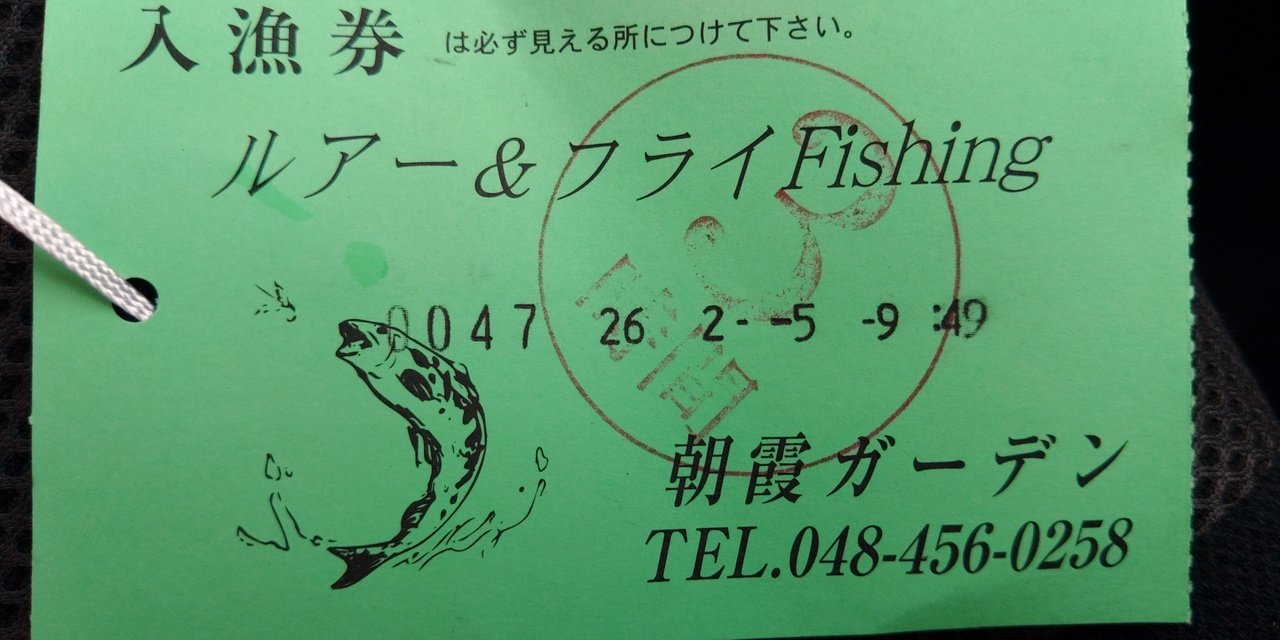 入漁券 は必ず見える所につけて下さい。
ルアー&フライFishing
0047 26 2--5 -9:49
朝霞ガーデン
TEL.048-456-0258